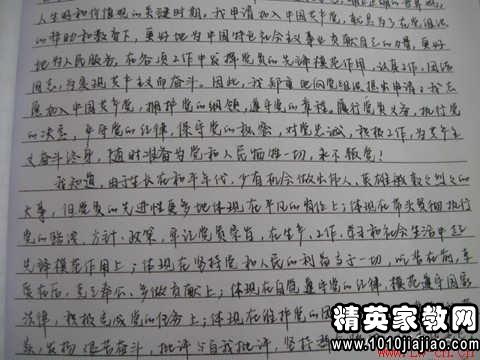 人生观和价值观的关键时期。我申请加入中国共产党，就是为了在党组织
的帮助和教育下，更好地为中国特色社会主义事业贡献自己的力量，更好
地为人民服务，在各项工作中发挥党员的先锋模范作用，认真工作，团结
同志，为实现共产主义而奋斗。因此，我郑重地向党组织提出申请：我志
愿加入中国共产党，拥护党的纲领，遵守党的章程，履行党员义务，执行党
的决定，严守党的纪律，保守党的秘密，对党忠诚，积极工作，为共产主
义奋斗终身，随时准备为党和人民牺牲一切，永不叛党！
我知道，由于生长在和平年代，少有机会做出伟人、英雄轰轰烈烈的
大事，但党员的先进性更多地体现在平凡的岗位上；体现在带头贯彻执行
党的路线、方针、政策，牢记党员宗旨，在生产、工作、学习和社会生活中起
先锋模范作用上；体现在坚持党和人民的利益高于一切，吃苦在前，享
受在后，克己奉公，多做贡献上；体现在自觉遵守党的纪律，模范遵守国家
法律，积极完成党的任务上；体现在维护党的团
发扬 艰苦奋斗，批评与自我批评，坚持
精英家教网
www.1010jiajiao.com